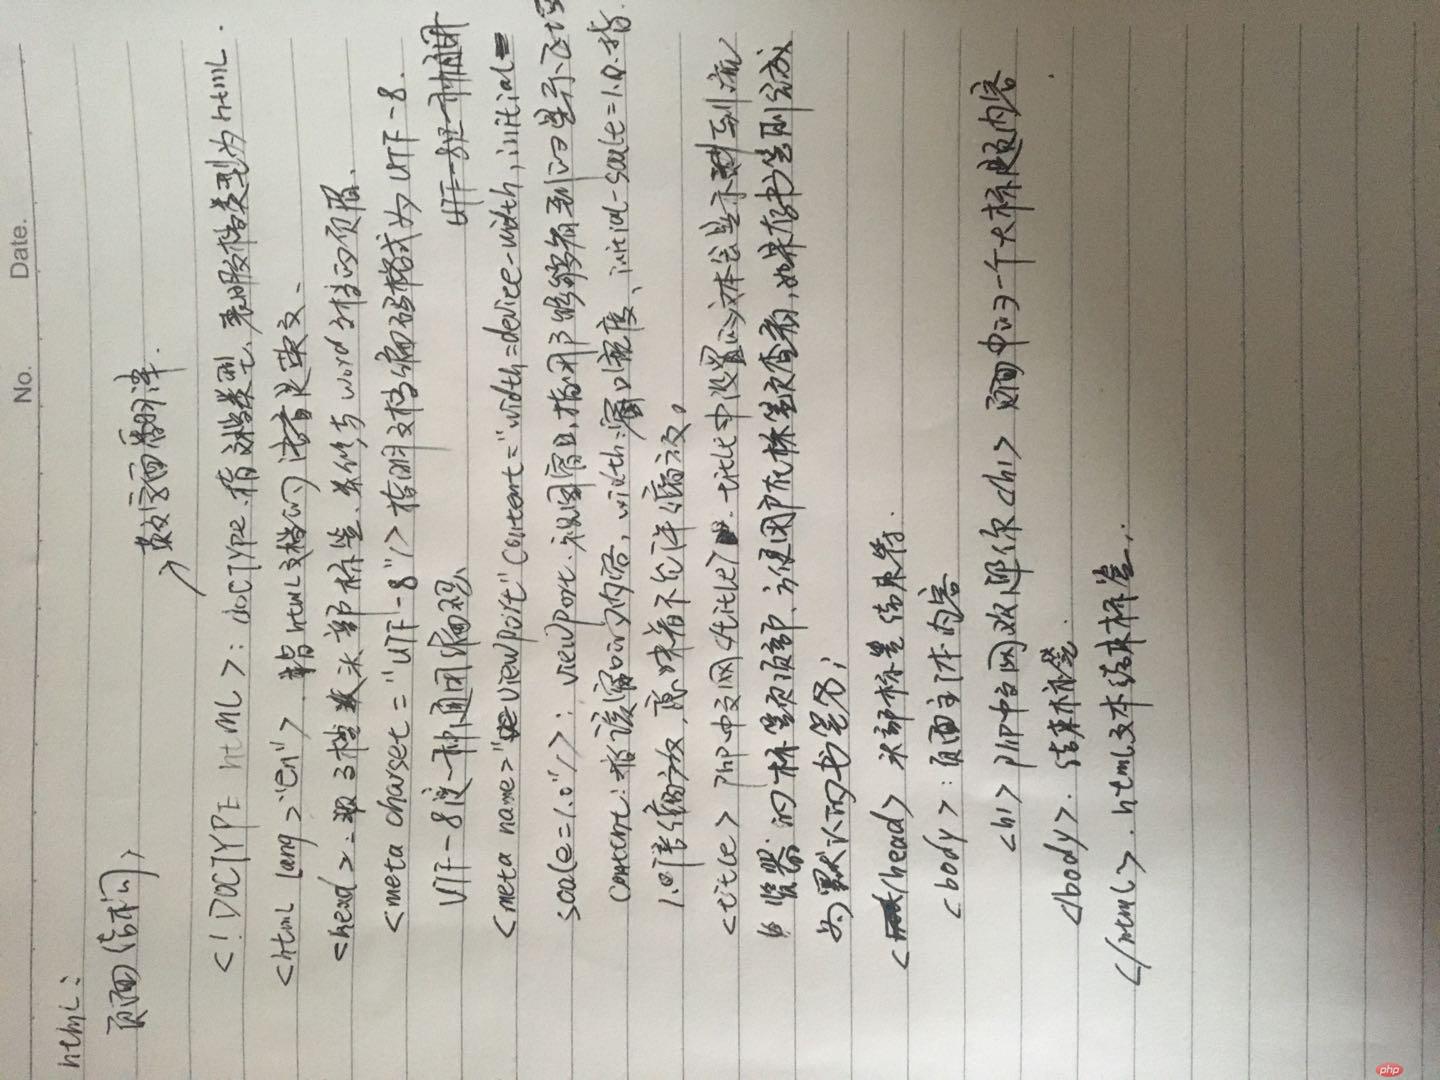 No.
Date.
html:
页面结构
英文字面翻译.
<!DOCTYPE html>: doCType.指文档类型、表明文档类型为html.
<html lang>"en">. 指html文档的语言是英文.
<head>: 文档头部标签、类似与word文档的页眉.
<meta charset="UTF-8"/>指明文档编码格式为UTF-8.
UTF-8这一种通用编码.
<meta name>"viewport" content="width=device-width,initial-
scale=1.0"/>: viewport.视图窗口,指用户能够看到的显示区域
content:指该窗口的内容, width:窗口宽度、initial-scale=1.0.指.
1.0倍缩放,意味着不允许缩放。
<title>php中文网</title>. title中设置的文本会显示到浏
览器的标签页顶部,方便用户在标签页查看,如果存书签则会成
为默认的书签名;
</head>头部标签结束符.
<body>:页面主体内容
<h1>php中文网欢迎你<h1> 页面中的一个大标题内容
</body>. 结束标签.
</html>. html文本结束标签.
php